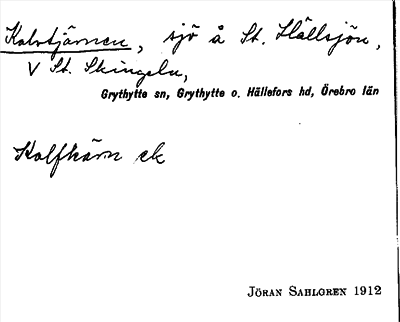 Kalvtjärnen, sjö å St. Hällsjön,
V St. Skingeln,
Grythytte sn, Grythytte o. Hällefors hd, Örebro län
Kalfkärn ek
Jöran Sahlgren 1912